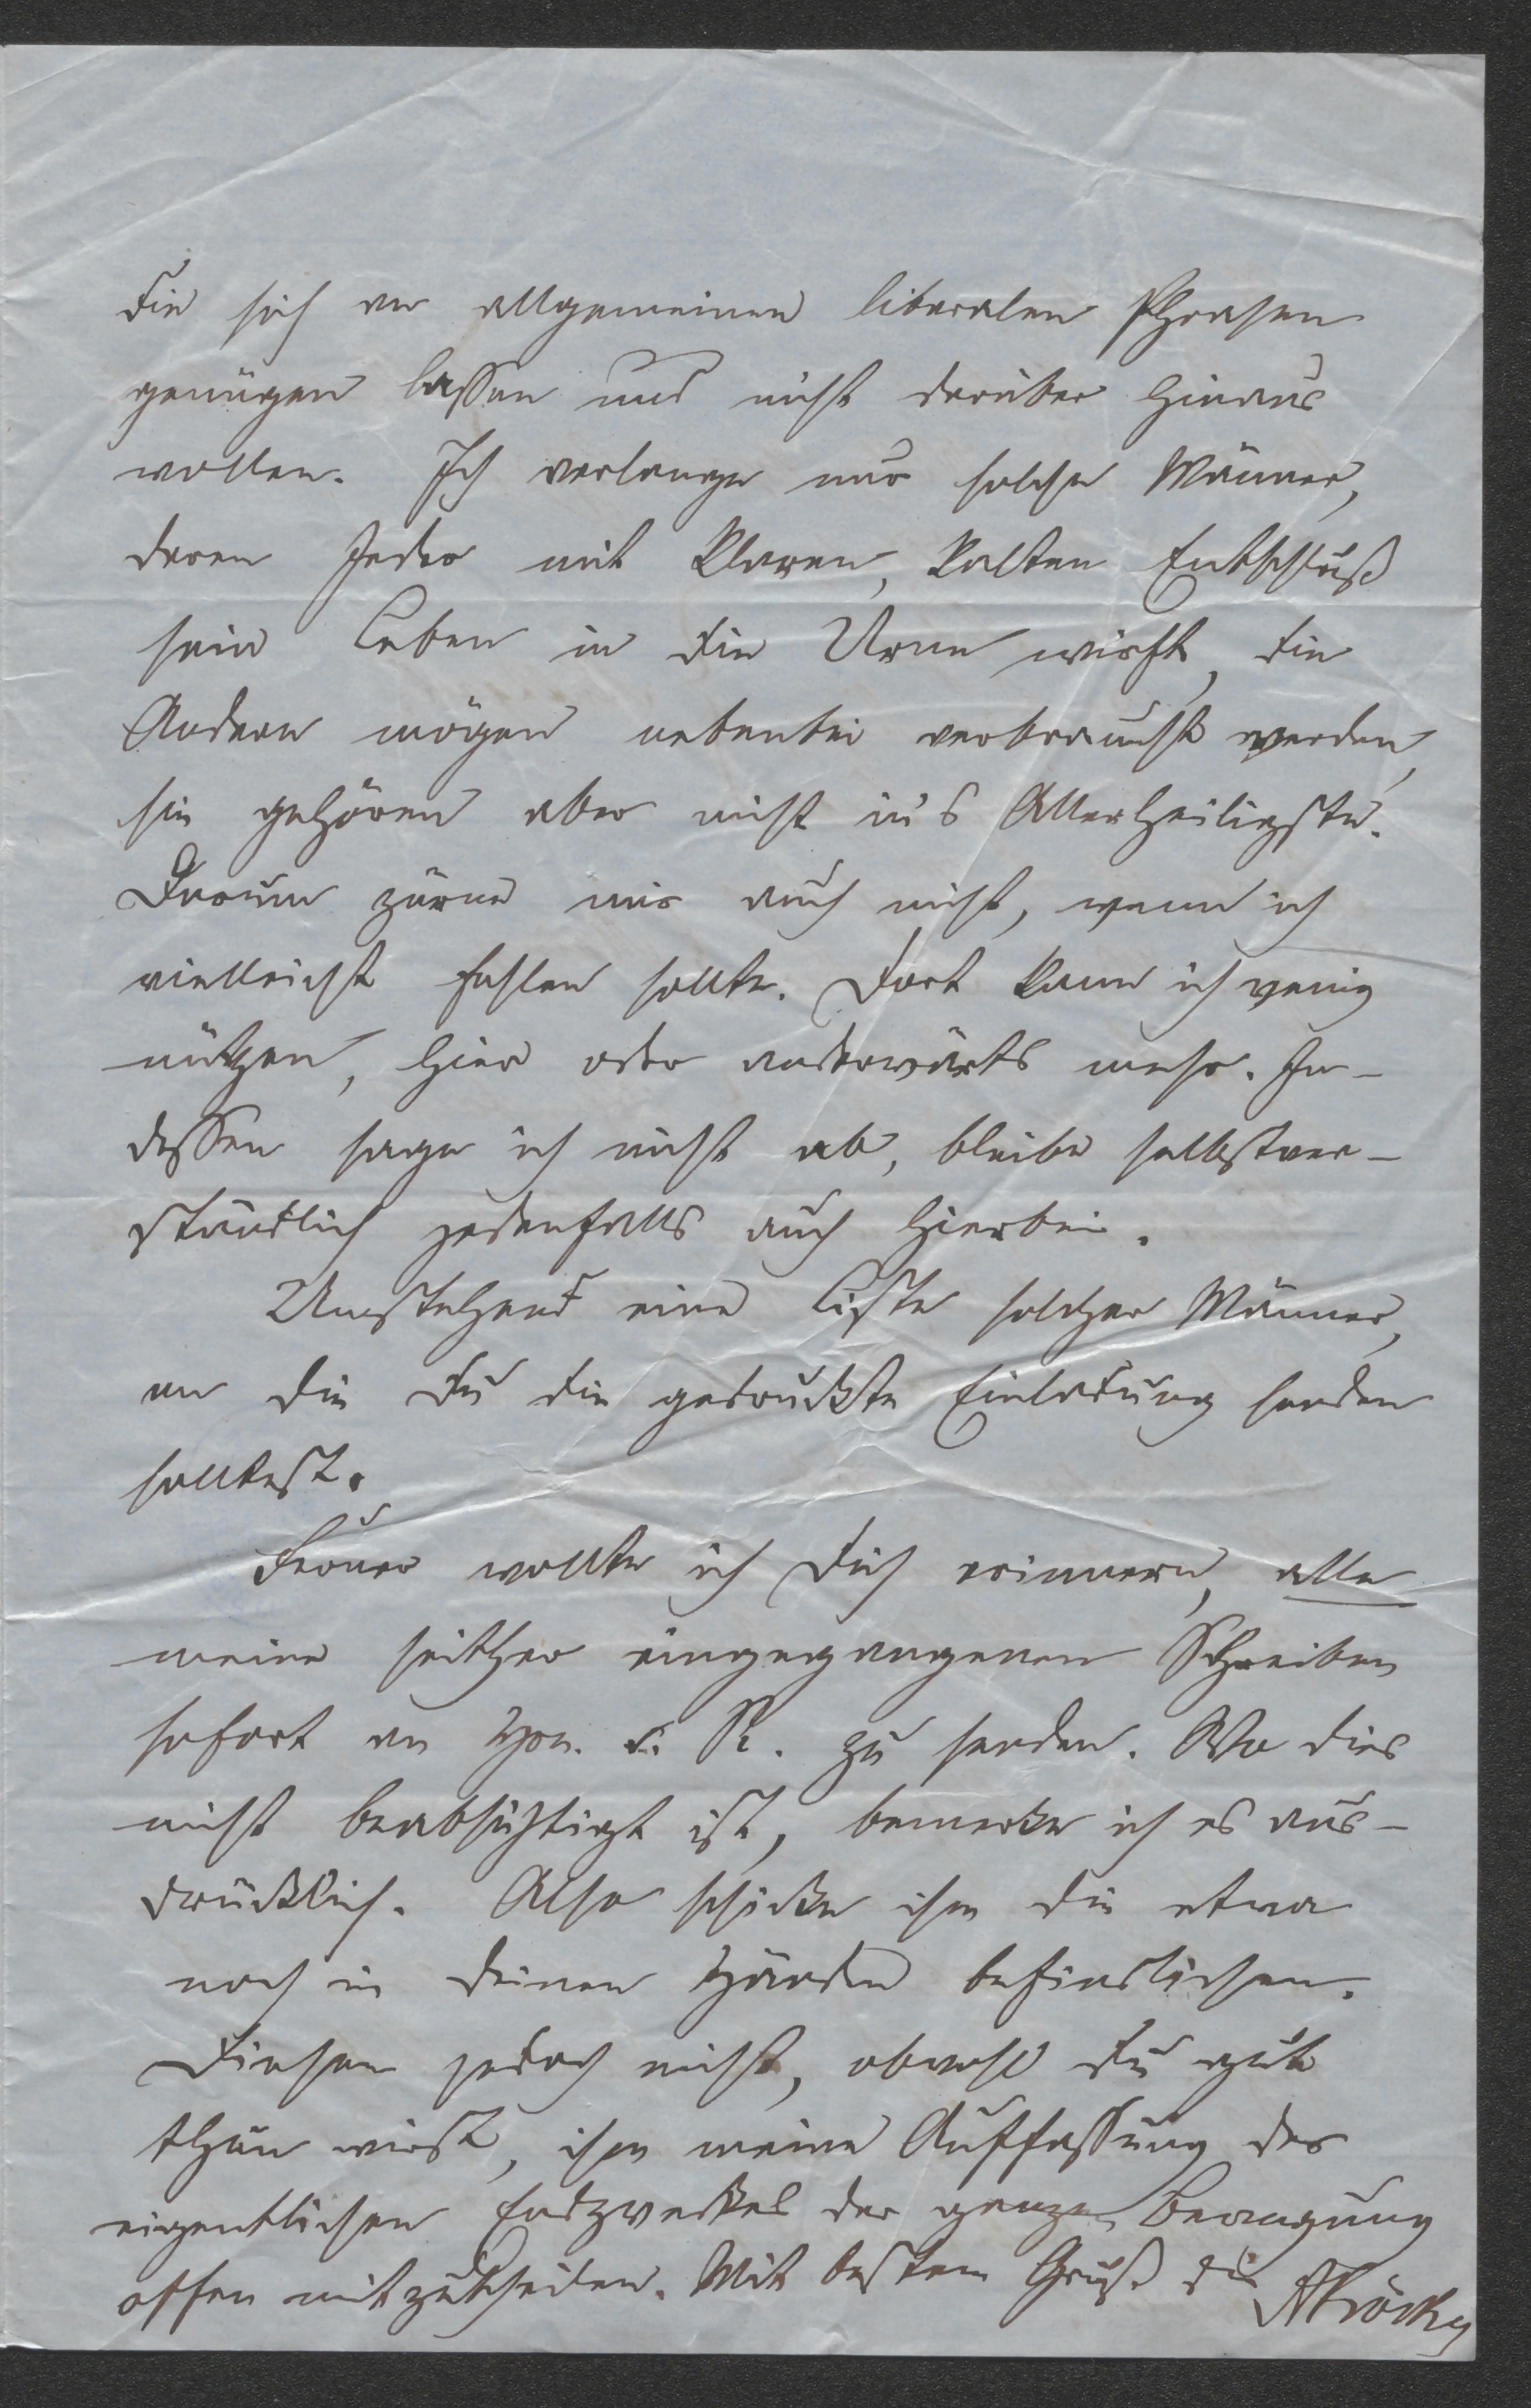 die sich an allgemeinen liberalen Phrasen
genügen lassen und nicht darüber hinaus
wollen. Ich verlange nur solche Männer,
deren Jeder mit klarem, kalten Entschluß
sein Leben in die Urne wirft, die
Andern mögen nebenbei verbraucht werden,
sie gehören aber nicht in's Allerheiligste.
Darum zürne mir auch nicht, wenn ich
vielleicht fehlen sollte. Dort kann ich wenig
nützen, hier oder anderwärts mehr. In-
dessen sage ich nicht ab, bleibe selbstver-
ständlich jedenfalls auch hierbei.
Umstehend eine Liste solcher Männer,
an die Du die gedruckte Einladung senden
solltest.
Ferner wollte ich Dich erinnern, alle
meine seither eingegangenen Schreiben
sofort an Hrn. v. R. zu senden. Wo dies
nicht beabsichtigt ist, bemerke ich es aus-
drücklich. Also schicke ihm die etwa
noch in Deinen Händen befindlichen.
Diesen jedoch nicht, obwohl Du gut
thun wirst, ihm meine Auffassung des
eigentlichen Endzweckes der ganzen Bewegung
offen mitzutheilen. Mit bestem Gruß